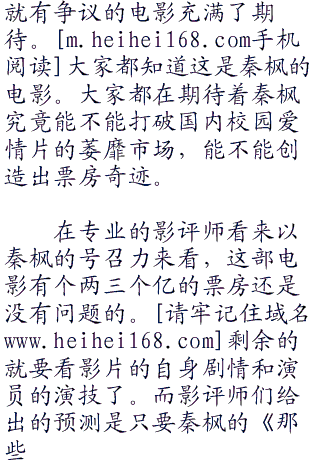 就有争议的电影充满了期
待。[m.heihei168.com手机
阅读]大家都知道这是秦枫的
电影。大家都在期待着秦枫
究竟能不能打破国内校园爱
情片的萎靡市场，能不能创
造出票房奇迹。
在专业的影评师看来以
秦枫的号召力来看，这部电
影有个两三个亿的票房还是
没有问题的。[请牢记住域名
www.heihei168.com]剩余的
就要看影片的自身剧情和演
员的演技了。而影评师们给
出的预测是只要秦枫的《那
些